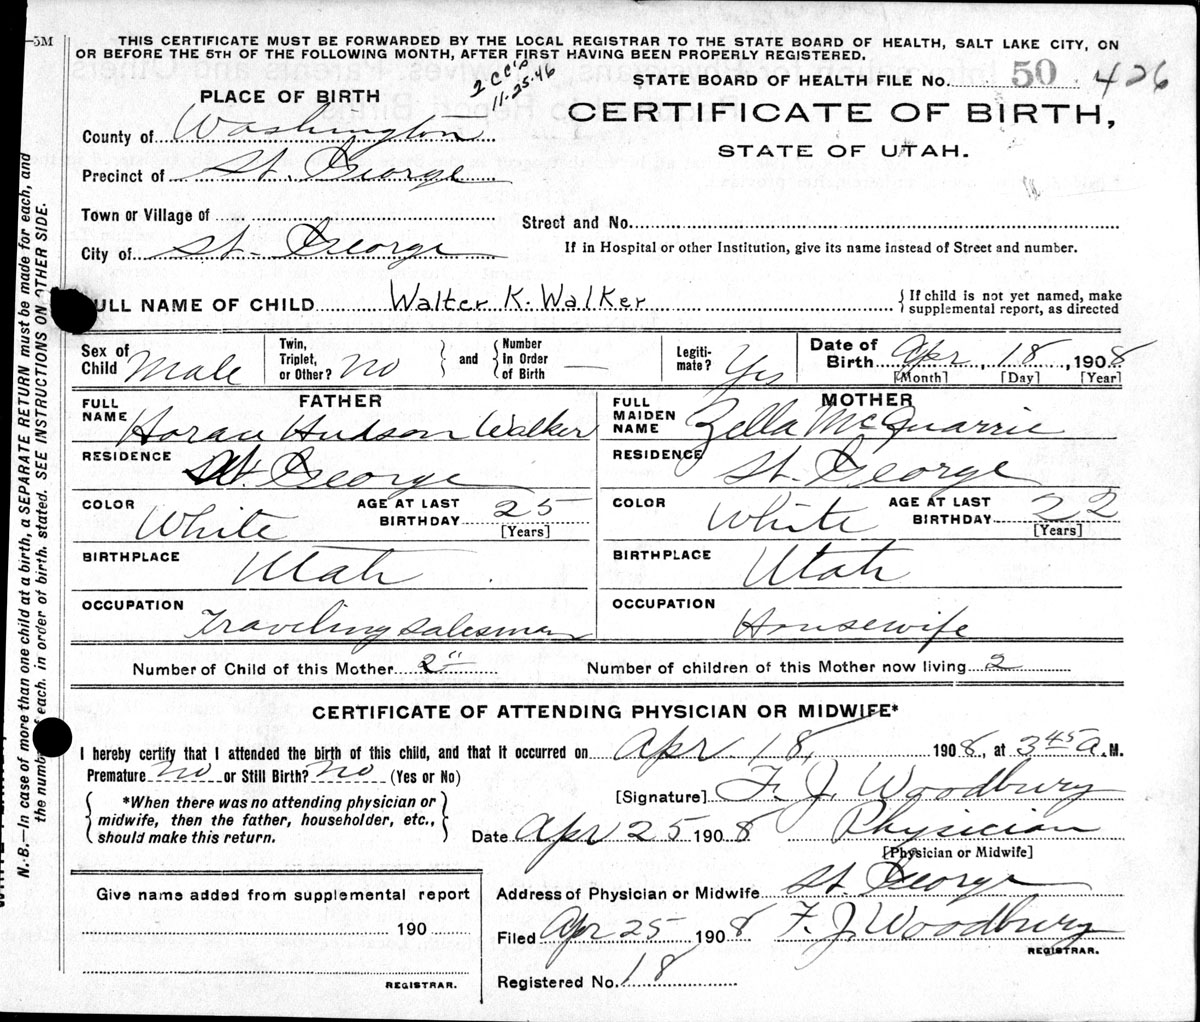 -5M
THIS CERTIFICATE MUST BE FORWARDED BY THE LOCAL REGISTRAR TO THE STATE BOARD OF HEALTH, SALT LAKE CITY, ON
OR BEFORE THE 5TH OF THE FOLLOWING MONTH, AFTER FIRST HAVING BEEN PROPERLY REGISTERED.
2 CC's
11-25-46
STATE BOARD OF HEALTH FILE No. 50 426
PLACE OF BIRTH
CERTIFICATE OF BIRTH,
STATE OF UTAH.
County of Washington
Precinct of St. George
Town or Village of
Street and No.
City of St. George
If in Hospital or other Institution, give its name instead of Street and number.
FULL NAME OF CHILD Walter K. Walker
{If child is not yet named, make
supplemental report, as directed
Sex of Child Male
Twin, Triplet, or Other? No } and { Number In Order of Birth —
Legiti-mate? Yes
Date of Birth Apr, 18, 1908
[Month] [Day] [Year]
FATHER
FULL NAME Horace Hudson Walker
RESIDENCE St George
COLOR White AGE AT LAST BIRTHDAY 25 [Years]
BIRTHPLACE Utah
OCCUPATION Traveling salesman
MOTHER
FULL MAIDEN NAME Zella McQuarrie
RESIDENCE St. George
COLOR White AGE AT LAST BIRTHDAY 22 [Years]
BIRTHPLACE Utah
OCCUPATION Housewife
Number of Child of this Mother 2" Number of children of this Mother now living 2
CERTIFICATE OF ATTENDING PHYSICIAN OR MIDWIFE*
I hereby certify that I attended the birth of this child, and that it occurred on Apr. 18, 1908, at 3 45 A. M.
Premature No or Still Birth? No (Yes or No)
{ *When there was no attending physician or
midwife, then the father, householder, etc.,
should make this return. }
[Signature] F. J. Woodbury
Date Apr 25 1908 Physician
[Physician or Midwife]
Give name added from supplemental report
190
REGISTRAR.
Address of Physician or Midwife St. George
Filed Apr 25 1908 F. J. Woodbury
REGISTRAR.
Registered No. 18
N. B.—In case of more than one child at a birth, a SEPARATE RETURN must be made for each, and
the number of each, in order of birth, stated. SEE INSTRUCTIONS ON OTHER SIDE.